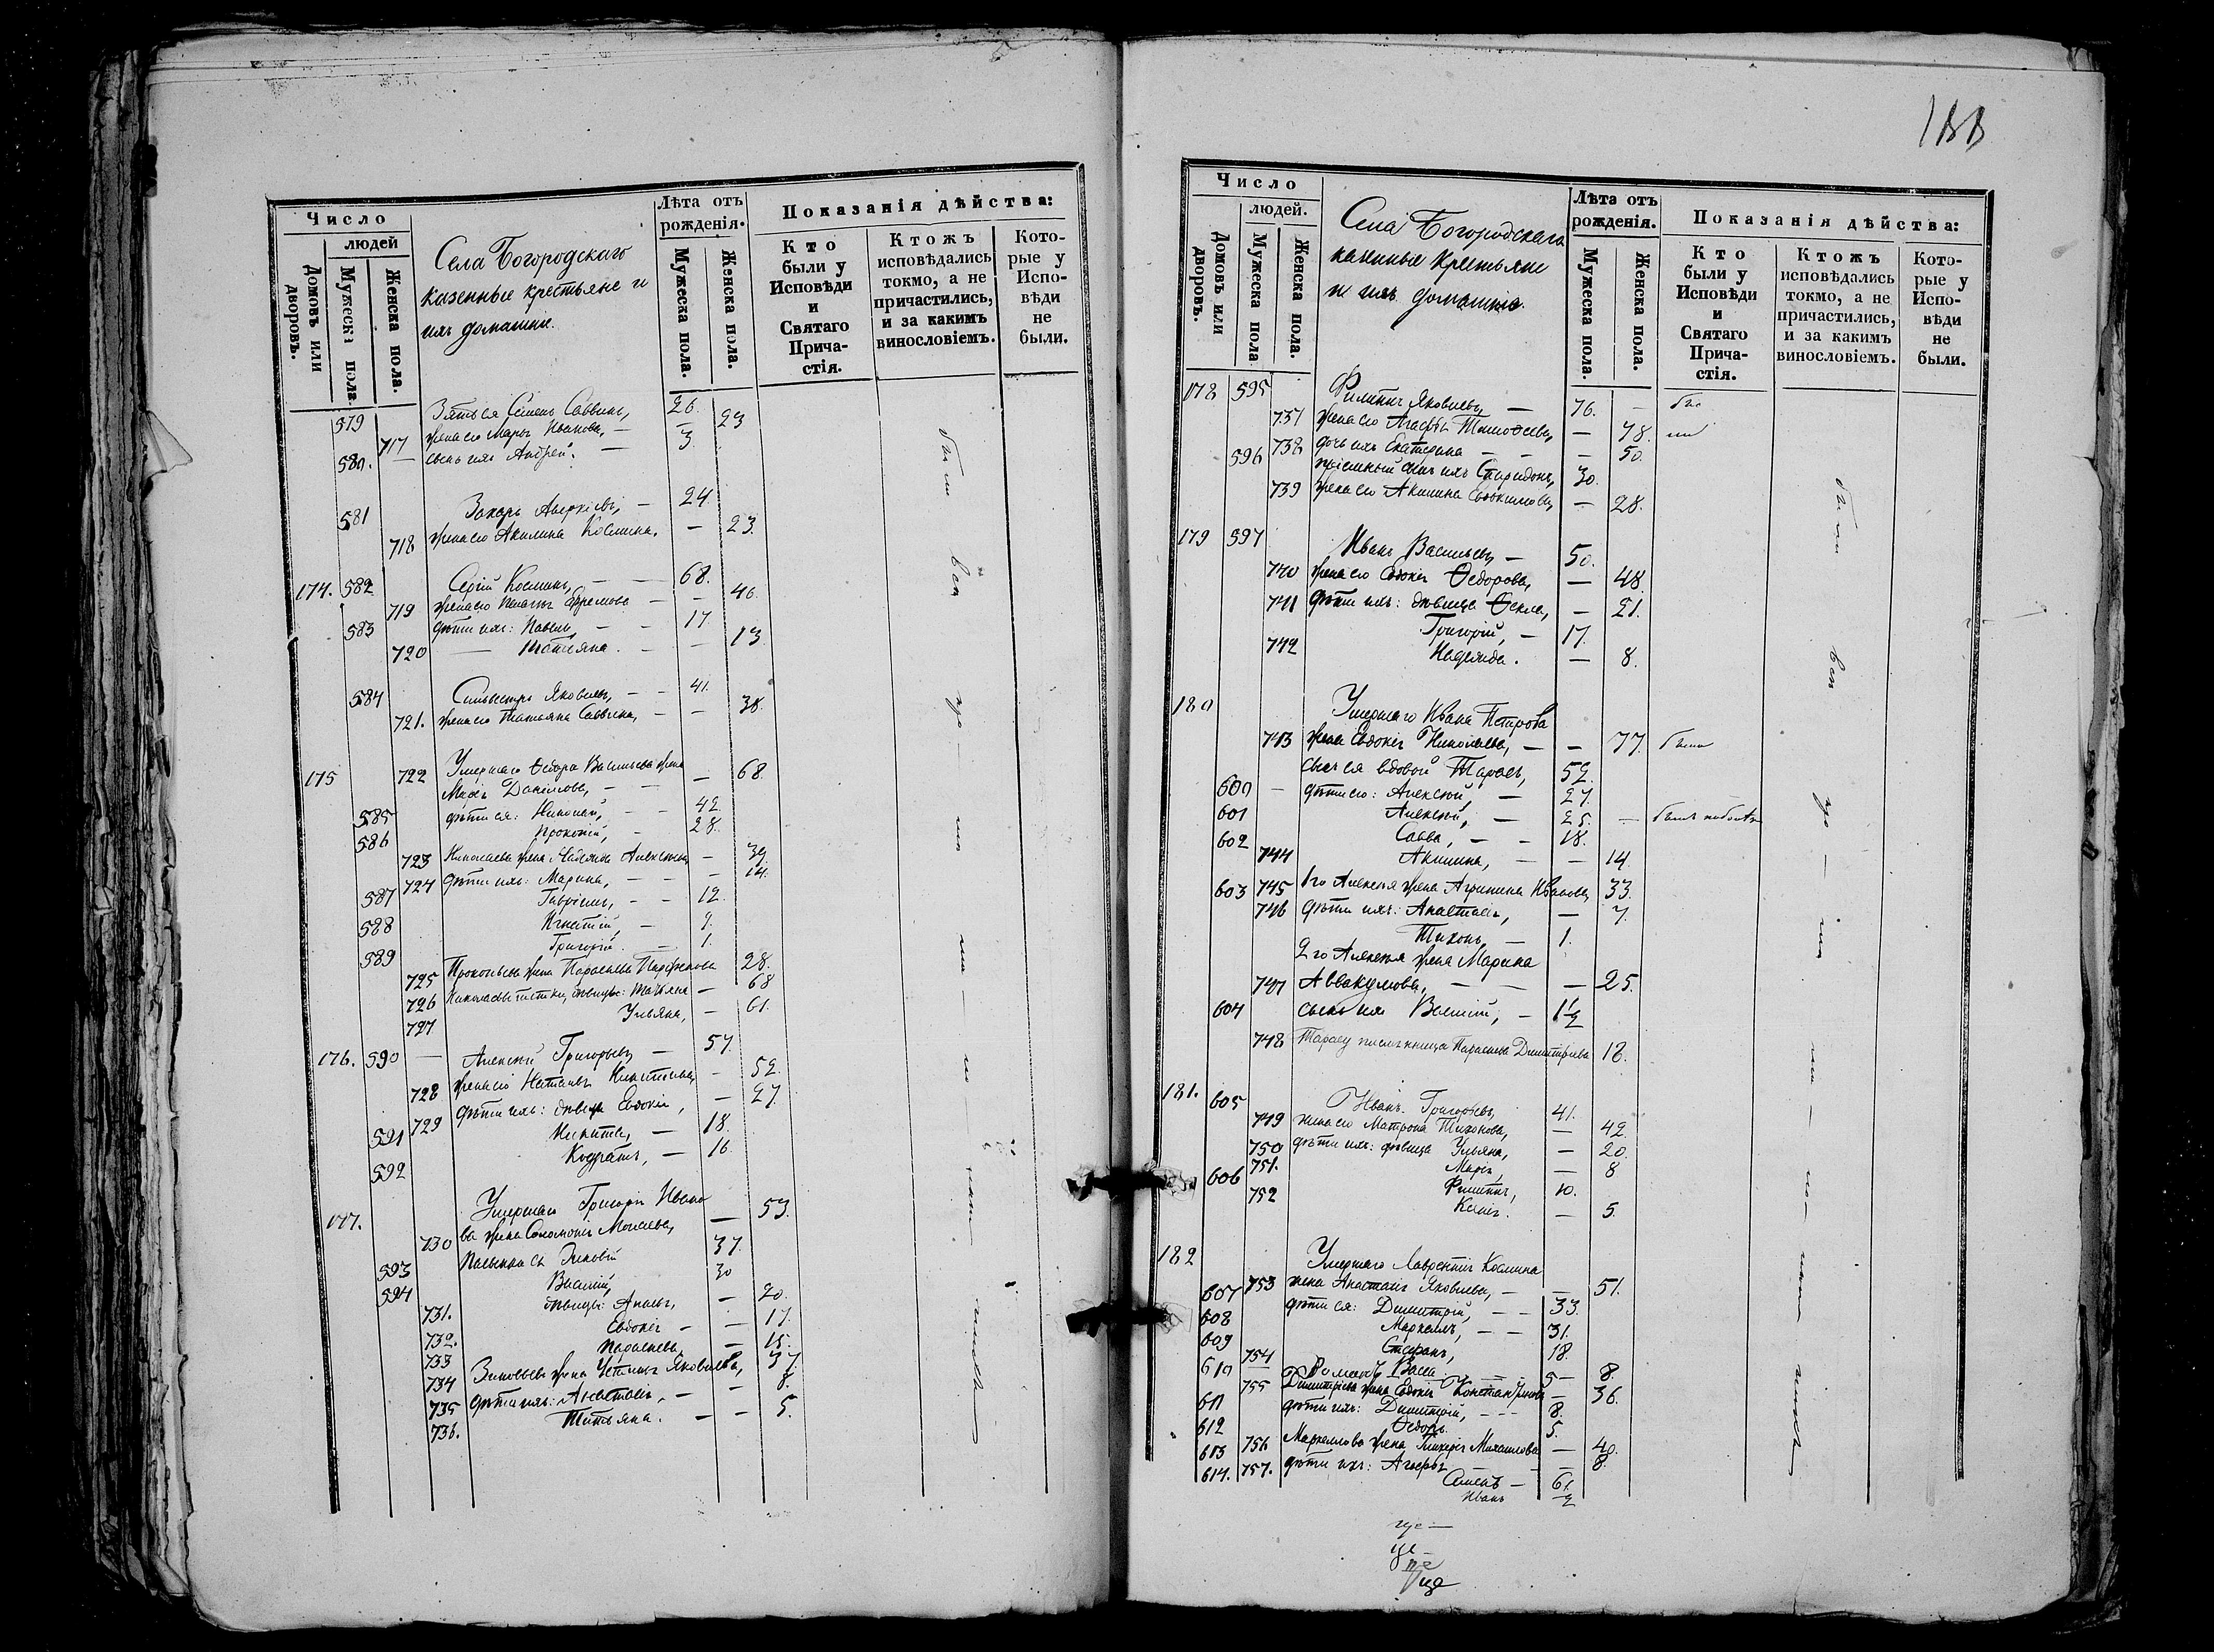 Число
людей
Домовъ или дворовъ.
Мужеска пола.
Женска пола.
Села Богородскаго
казенные крестьяне и
ихъ домашніе.
Лѣта отъ рожденія.
Мужеска пола.
Женска пола.
Показанія дѣйства:
Кто были у Исповѣди и Святаго Причастія.
Ктожъ исповѣдались токмо, а не причастились, и за какимъ винословіемъ.
Которые у Исповѣди не были.
579 Зять ея Семенъ Саввинъ, 26.
717 жена его Марѳа Иванова, — 23
580. сынъ ихъ Андрей. — 3.
581 Захаръ Аверкіевъ, — 24
718 жена его Акилина Космина, — 23.
174. 582 Сергій Косминъ, — 68.
719 жена его Пелагія Ефремова — 46.
583 дѣти ихъ: Павелъ, — 17
720 — Татьяна. — 13
584 Сильвестръ Яковлевъ, — 41.
721. жена его Татьяна Саввина, — 38.
175 722 Умершаго Ѳедора Васильева жена
Данилова, — 68.
585 дѣти ея: Николай, — 42.
586 Прокопій, — 28.
723 Николаева жена Надежда Алексѣева — 39.
724 дѣти ихъ: Марина, — 14.
587 Гавріилъ, — 12.
588 Игнатій, — 9.
589 Григорій. — 1.
725 Прокопьева жена Параскева Парфенова 28.
726 Николаевы тетки, дѣвицы: Татьяна — 68
727 Ульяна, — 61.
176. 590 — Алексѣй Григорьевъ — 57.
728 жена его Наталья Никитина — 52.
729 дѣти ихъ: дѣвица Евдокія, — 27.
591 Никита, — 18.
592 Кодратъ, — 16.
177. Умершаго Григорія Ивано
730 ва жена Соломонія Моисеева, — 53.
593 Зиновій 37.
594 Василій, 30
731. дѣвицы: — 20.
732. Евдокія — 17.
733 Параскева, — 15.
734 Зиновьева жена Устинья Яковлева, 37.
735 дѣти ихъ: Анастасія, — 8.
736. Татьяна. — 5.
были всѣ
188
Число
людей.
Домовъ или дворовъ.
Мужеска пола
Женска пола.
Села Богородскаго
казенные крестьяне
и ихъ домашніе.
Лѣта отъ рожденія.
Мужеска пола.
Женска пола.
Показанія дѣйства:
Кто были у Исповѣди и Святаго Причастія.
Ктожъ исповѣдались токмо, а не причастились, и за какимъ винословіемъ.
Которые у Исповѣди не были.
178 595 Филиппъ Яковлевъ, — 76. —
737 жена его Агафья Тимоѳеева, — 78.
738 дочь ихъ Екатерина — 50.
596 пріемный сынъ ихъ Спиридонъ, 30.
739 жена его Акилина Евдокимова, — 28.
179 597 Иванъ Васильевъ — 50.
740 жена его Евдокія Ѳедорова, — 48
741 дѣти ихъ: дѣвица Ѳекла, — 21.
Григорій, — 17.
742 Надежда. — 8.
180 Умершаго Ивана Петрова
743 жена Евдокія Николаева, — 77.
сынъ ея вдовой Тарасъ, 52.
600 — дѣти его: Алексѣй, — 27.
601 Алексѣй, — 25. —
602 Савва, — 18.
744 Акилина, — 14.
603 745 1го Алексѣя жена Агрипина Иванова 33.
746 дѣти ихъ: Анастасія, — 7.
Тихонъ, — 1.
2го Алексѣя жена Марина
747 Аввакумова, — 25.
604 сынъ ихъ Василій, — 1 1/2
748 Тарасу племянница Параскева Димитріева 18.
181. 605 Иванъ Григорьевъ, 41.
749 жена его Матрона Тихонова, — 42.
750 дѣти ихъ: дѣвица Ульяна, — 20.
751. Марія, — 8
606 Филиппъ, 10.
752 — 5.
182 Умершаго Лаврентія Космина
753 жена Анастасія Яковлева, — 51.
607 дѣти ея: Димитрій, — 33.
608 Маркеллъ, — 31.
609 Стефанъ, 18.
610 754 Васса — 8.
755 Димитріева жена Евдокія Константинова — 36.
611 дѣти ихъ: Димитрій, — 8.
612 Ѳедоръ. 5.
613 756 Маркеллова жена Гликерія Михаилова — 40.
614. 757. дѣти ихъ: Агафья — 8.
Семенъ — 6.
Иванъ 1/2
были всѣ